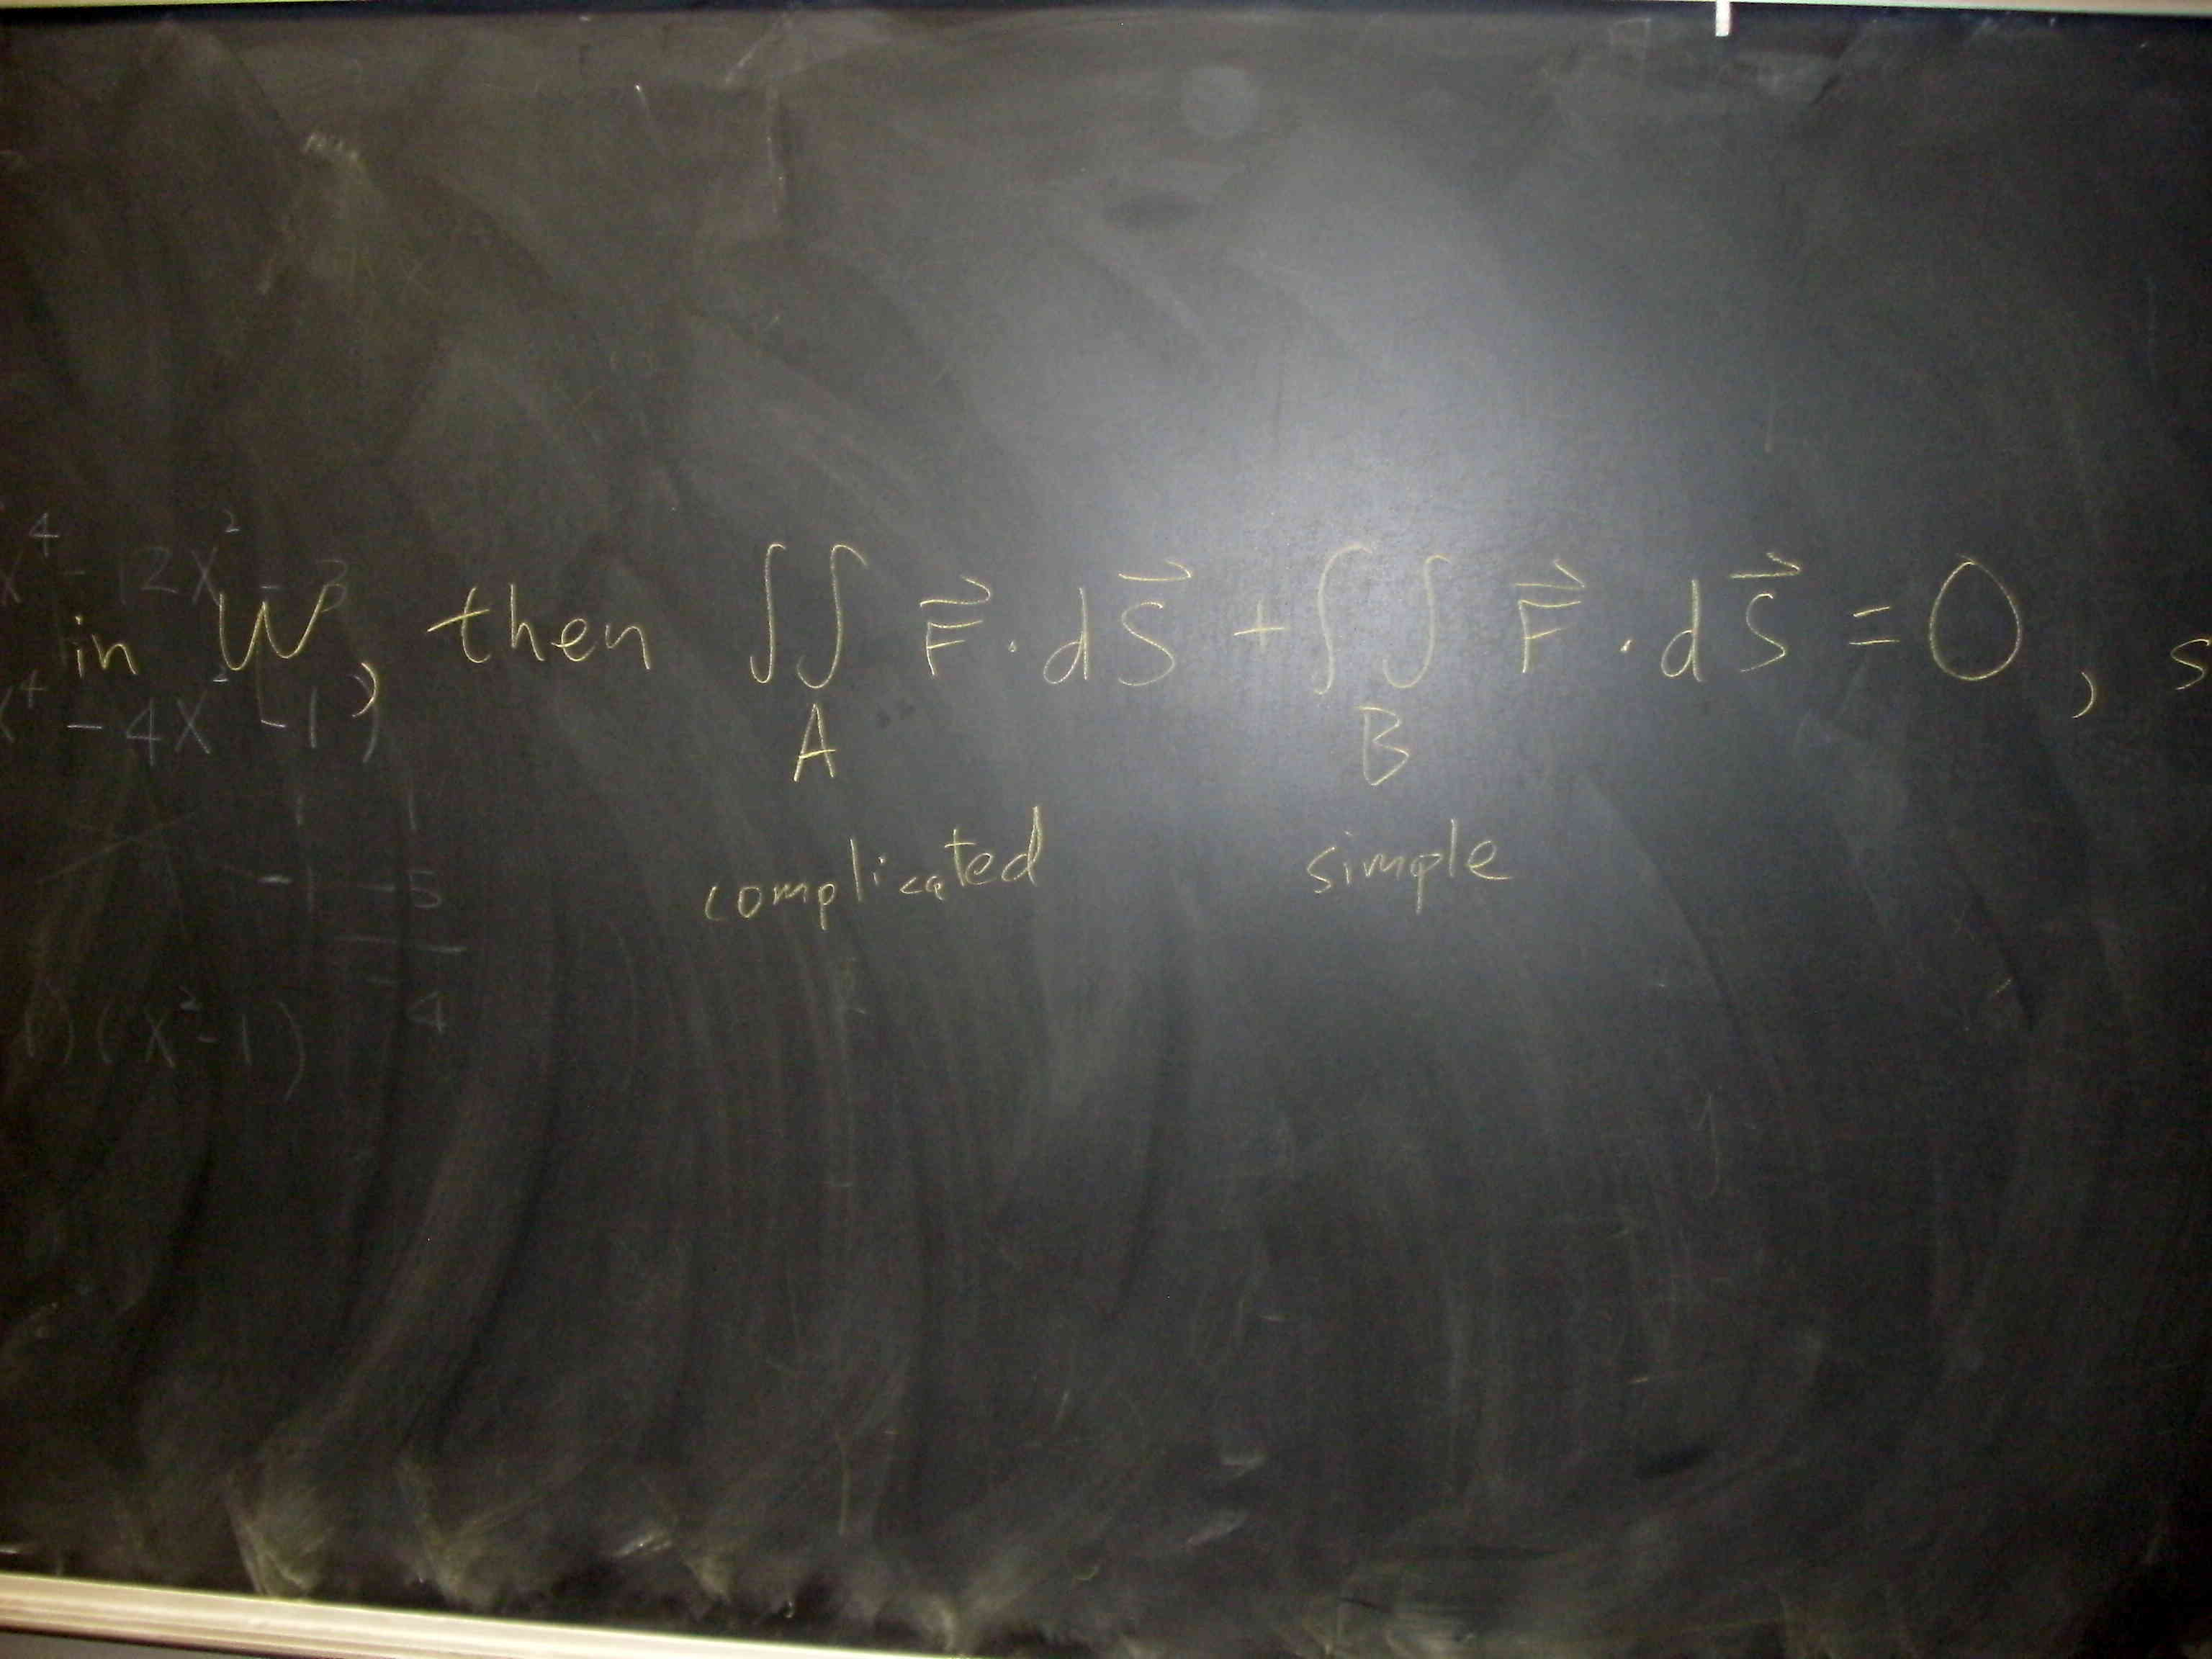 x⁴ - 12x² - 3
in W, then ∫∫ F⃗ · dS⃗ + ∫∫ F⃗ · dS⃗ = 0, s
A B
x⁴ - 4x² - 1)
complicated simple
1 1
-1 -5
-4
)(x² - 1)